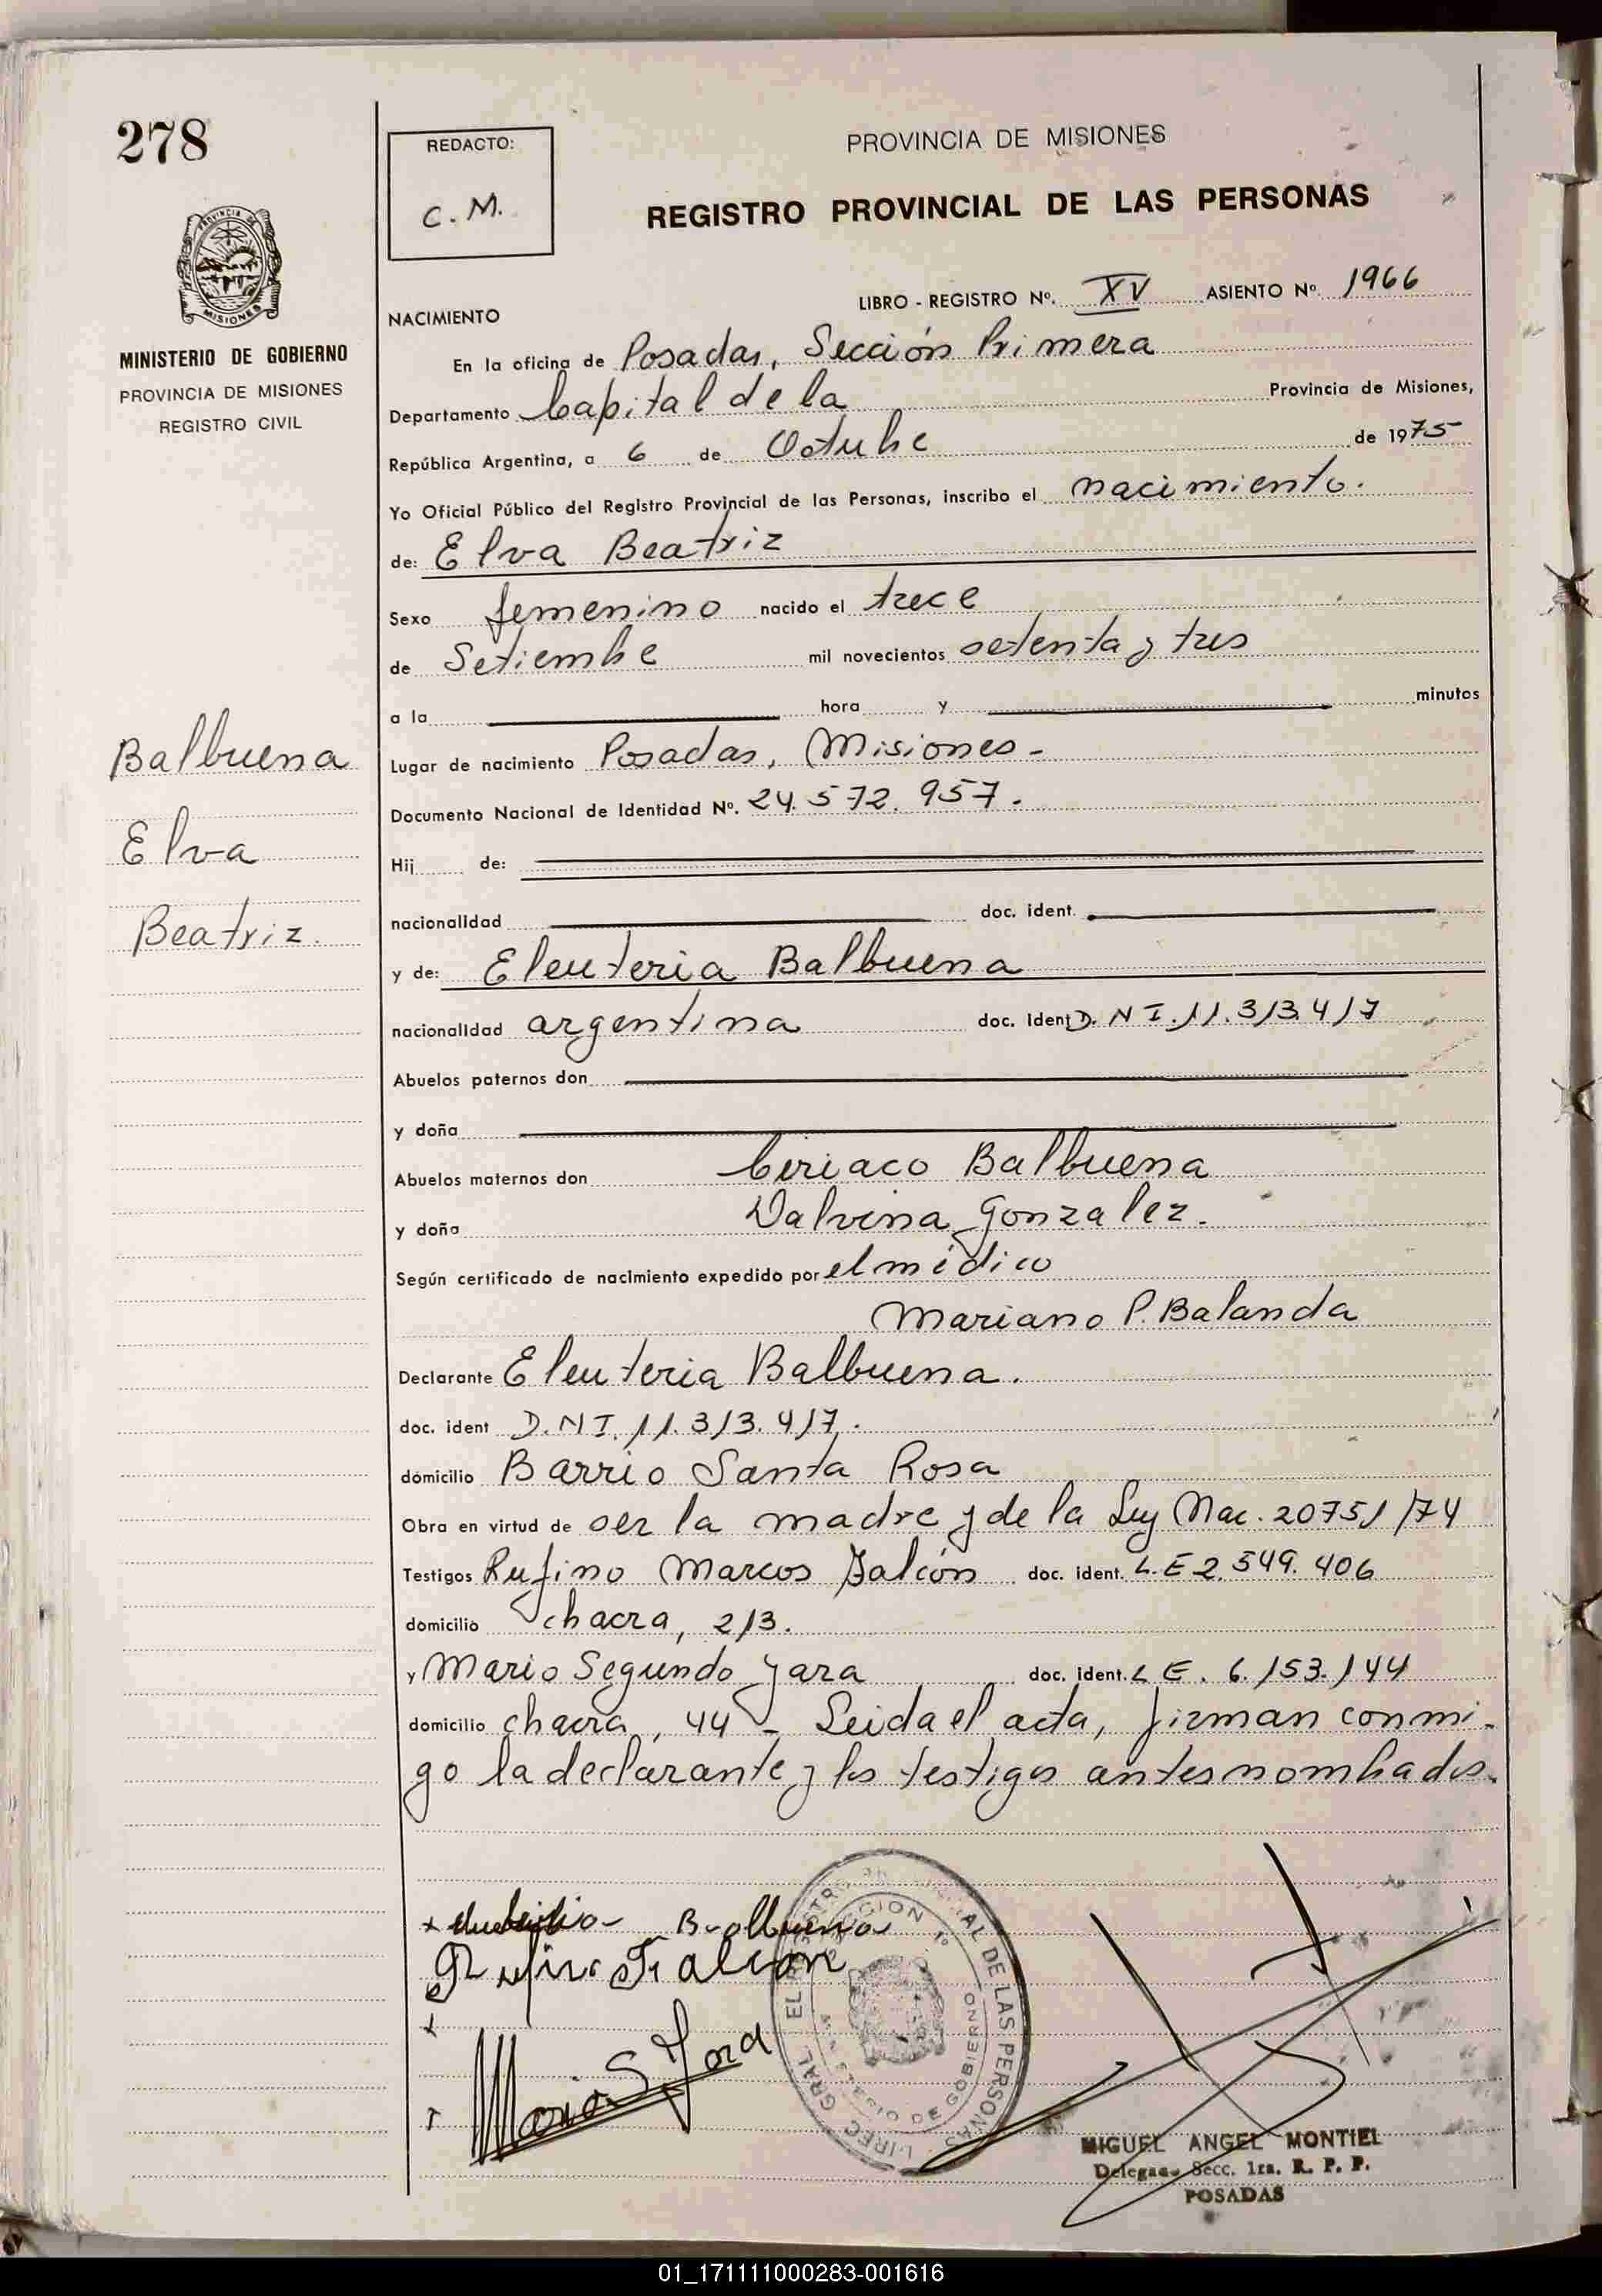 278
REDACTO:
C. M.
PROVINCIA DE MISIONES
REGISTRO PROVINCIAL DE LAS PERSONAS
MISIONES
MINISTERIO DE GOBIERNO
PROVINCIA DE MISIONES
REGISTRO CIVIL
LIBRO - REGISTRO Nº. XV ASIENTO Nº 1966
NACIMIENTO
En la oficina de Posadas, Sección Primera
Departamento Capital de la Provincia de Misiones,
República Argentina, a 6 de Octubre de 1975
Yo Oficial Público del Registro Provincial de las Personas, inscribo el nacimiento.
de: Elva Beatriz
Sexo femenino nacido el trece
de Setiembre mil novecientos setenta y tres
a la hora y minutos
Balbuena
Elva
Beatriz.
Lugar de nacimiento Posadas, Misiones -
Documento Nacional de Identidad Nº. 24.572.957.
Hij de:
nacionalidad doc. ident.
y de: Eleuteria Balbuena
nacionalidad argentina doc. ident D.N I. 11.313.417
Abuelos paternos don
y doña
Abuelos maternos don Ciriaco Balbuena
y doña Dalvina Gonzalez.
Según certificado de nacimiento expedido por el médico
Mariano P. Balanda
Declarante Eleuteria Balbuena.
doc. ident D.N I. 11.313.417.
domicilio Barrio Santa Rosa
Obra en virtud de ser la madre y de la Ley Nac. 20751/74
Testigos Rufino Marcos Falcón doc. ident. L.E 2.549.406
domicilio chacra, 213.
y Mario Segundo Jara doc. ident. L E. 6.153.144
domicilio chacra, 44 - Leida el acta, firman conmi-
go la declarante y los testigos antes nombrados.
Balbuena
Rufino Falcon
Mario S Jara
DIREC. GRAL. DEL REGISTRO PROVINCIAL DE LAS PERSONAS
SECCION 1º
MINISTERIO DE GOBIERNO
MIGUEL ANGEL MONTIEL
Delegado Secc. 1ra. R. P. P.
POSADAS
01_171111000283-001616